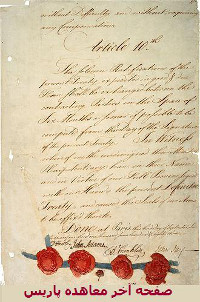 without Difficulty and without requiring
any Compensation.
Article 10th.
The solemn Ratifications of the
present Treaty expedited in good & due
Form shall be exchanged between the
contracting Parties in the Space of
Six Months or sooner if possible to be
computed from the Day of the Signature
of the present Treaty. In Witness
whereof we the undersigned
their Ministers Plenipotentiary have in their Name
and in Virtue of our Full Powers signed
with our Hands the present Definitive
Treaty, and caused the Seals of our Arms
to be affix'd thereto.
Done at Paris, this third day of
John Adams
B Franklin
John Jay
صفحه آخر معاهده پاریس